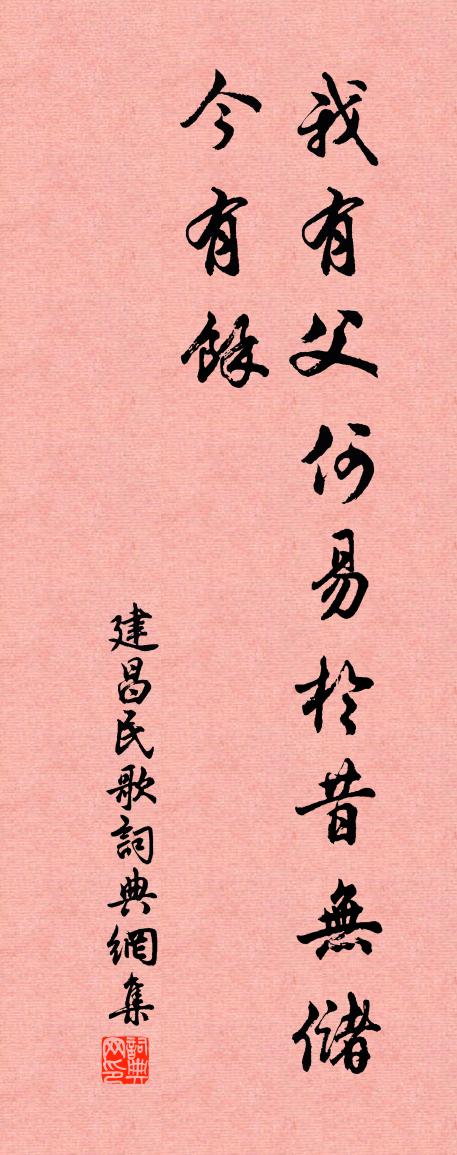 我有父何易於昔無儲
今有餘
建昌民歌詞典網集
詞典网印